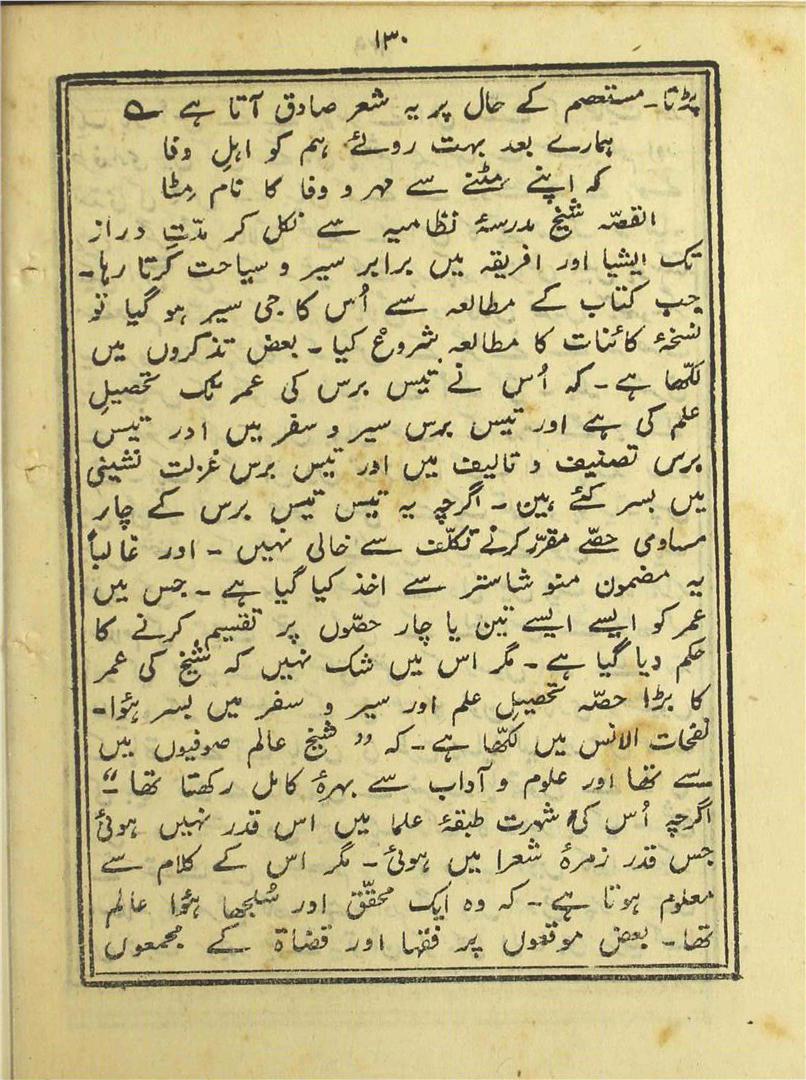 ۱۳۰
پڑتا۔ مستعصم کے حال پر یہ شعر صادق آتا ہے ؎
ہمارے بعد بہت روئے ہم کو اہلِ وفا
کہ اپنے مٹنے سے مہر و وفا کا نام مِٹا
القصّہ شیخ مدرسۂ نظامیہ سے نکل کر مدّتِ دراز
تک ایشیا اور افریقہ میں برابر سیر و سیاحت کرتا رہا۔
جب کتاب کے مطالعہ سے اُس کا جی سیر ہو گیا تو
نسخۂ کائنات کا مطالعہ شروع کیا۔ بعض تذکروں میں
لکھّا ہے۔ کہ اُس نے تیس برس کی عمر تک تحصیلِ
علم کی ہے اور تیس برس سیر و سفر میں اور تیس
برس تصنیف و تالیف میں اور تیس برس عزلت نشینی
میں بسر کئے ہین۔ اگرچہ یہ تیس تیس برس کے چار
مساوی حصّے مقرّر کرنے تکلّف سے خالی نہیں۔ اور غالباً
یہ مضمون منو شاستر سے اخذ کیا گیا ہے۔ جس میں
عمر کو ایسے ایسے تین یا چار حصّوں پر تقسیم کرنے کا
حکم دیا گیا ہے۔ مگر اس میں شک نہیں کہ شیخ کی عمر
کا بڑا حصّہ تحصیلِ علم اور سیر و سفر میں بسر ہئوا۔
نفحات الانس میں لکھّا ہے۔ کہ ”شیخ عالم صوفیوں میں
سے تھا اور علوم و آداب سے بہرۂ کامل رکھتا تھا“
اگرچہ اُس کی شہرت طبقۂ علما میں اس قدر نہیں ہوئی
جس قدر زمرۂ شعرا میں ہوئی۔ مگر اس کے کلام سے
معلوم ہوتا ہے۔ کہ وہ ایک محقّق اور سُلجھا ہئوا عالم
تھا۔ بعض موقعوں پر فقہا اور قضاۃ کے مجمعوں